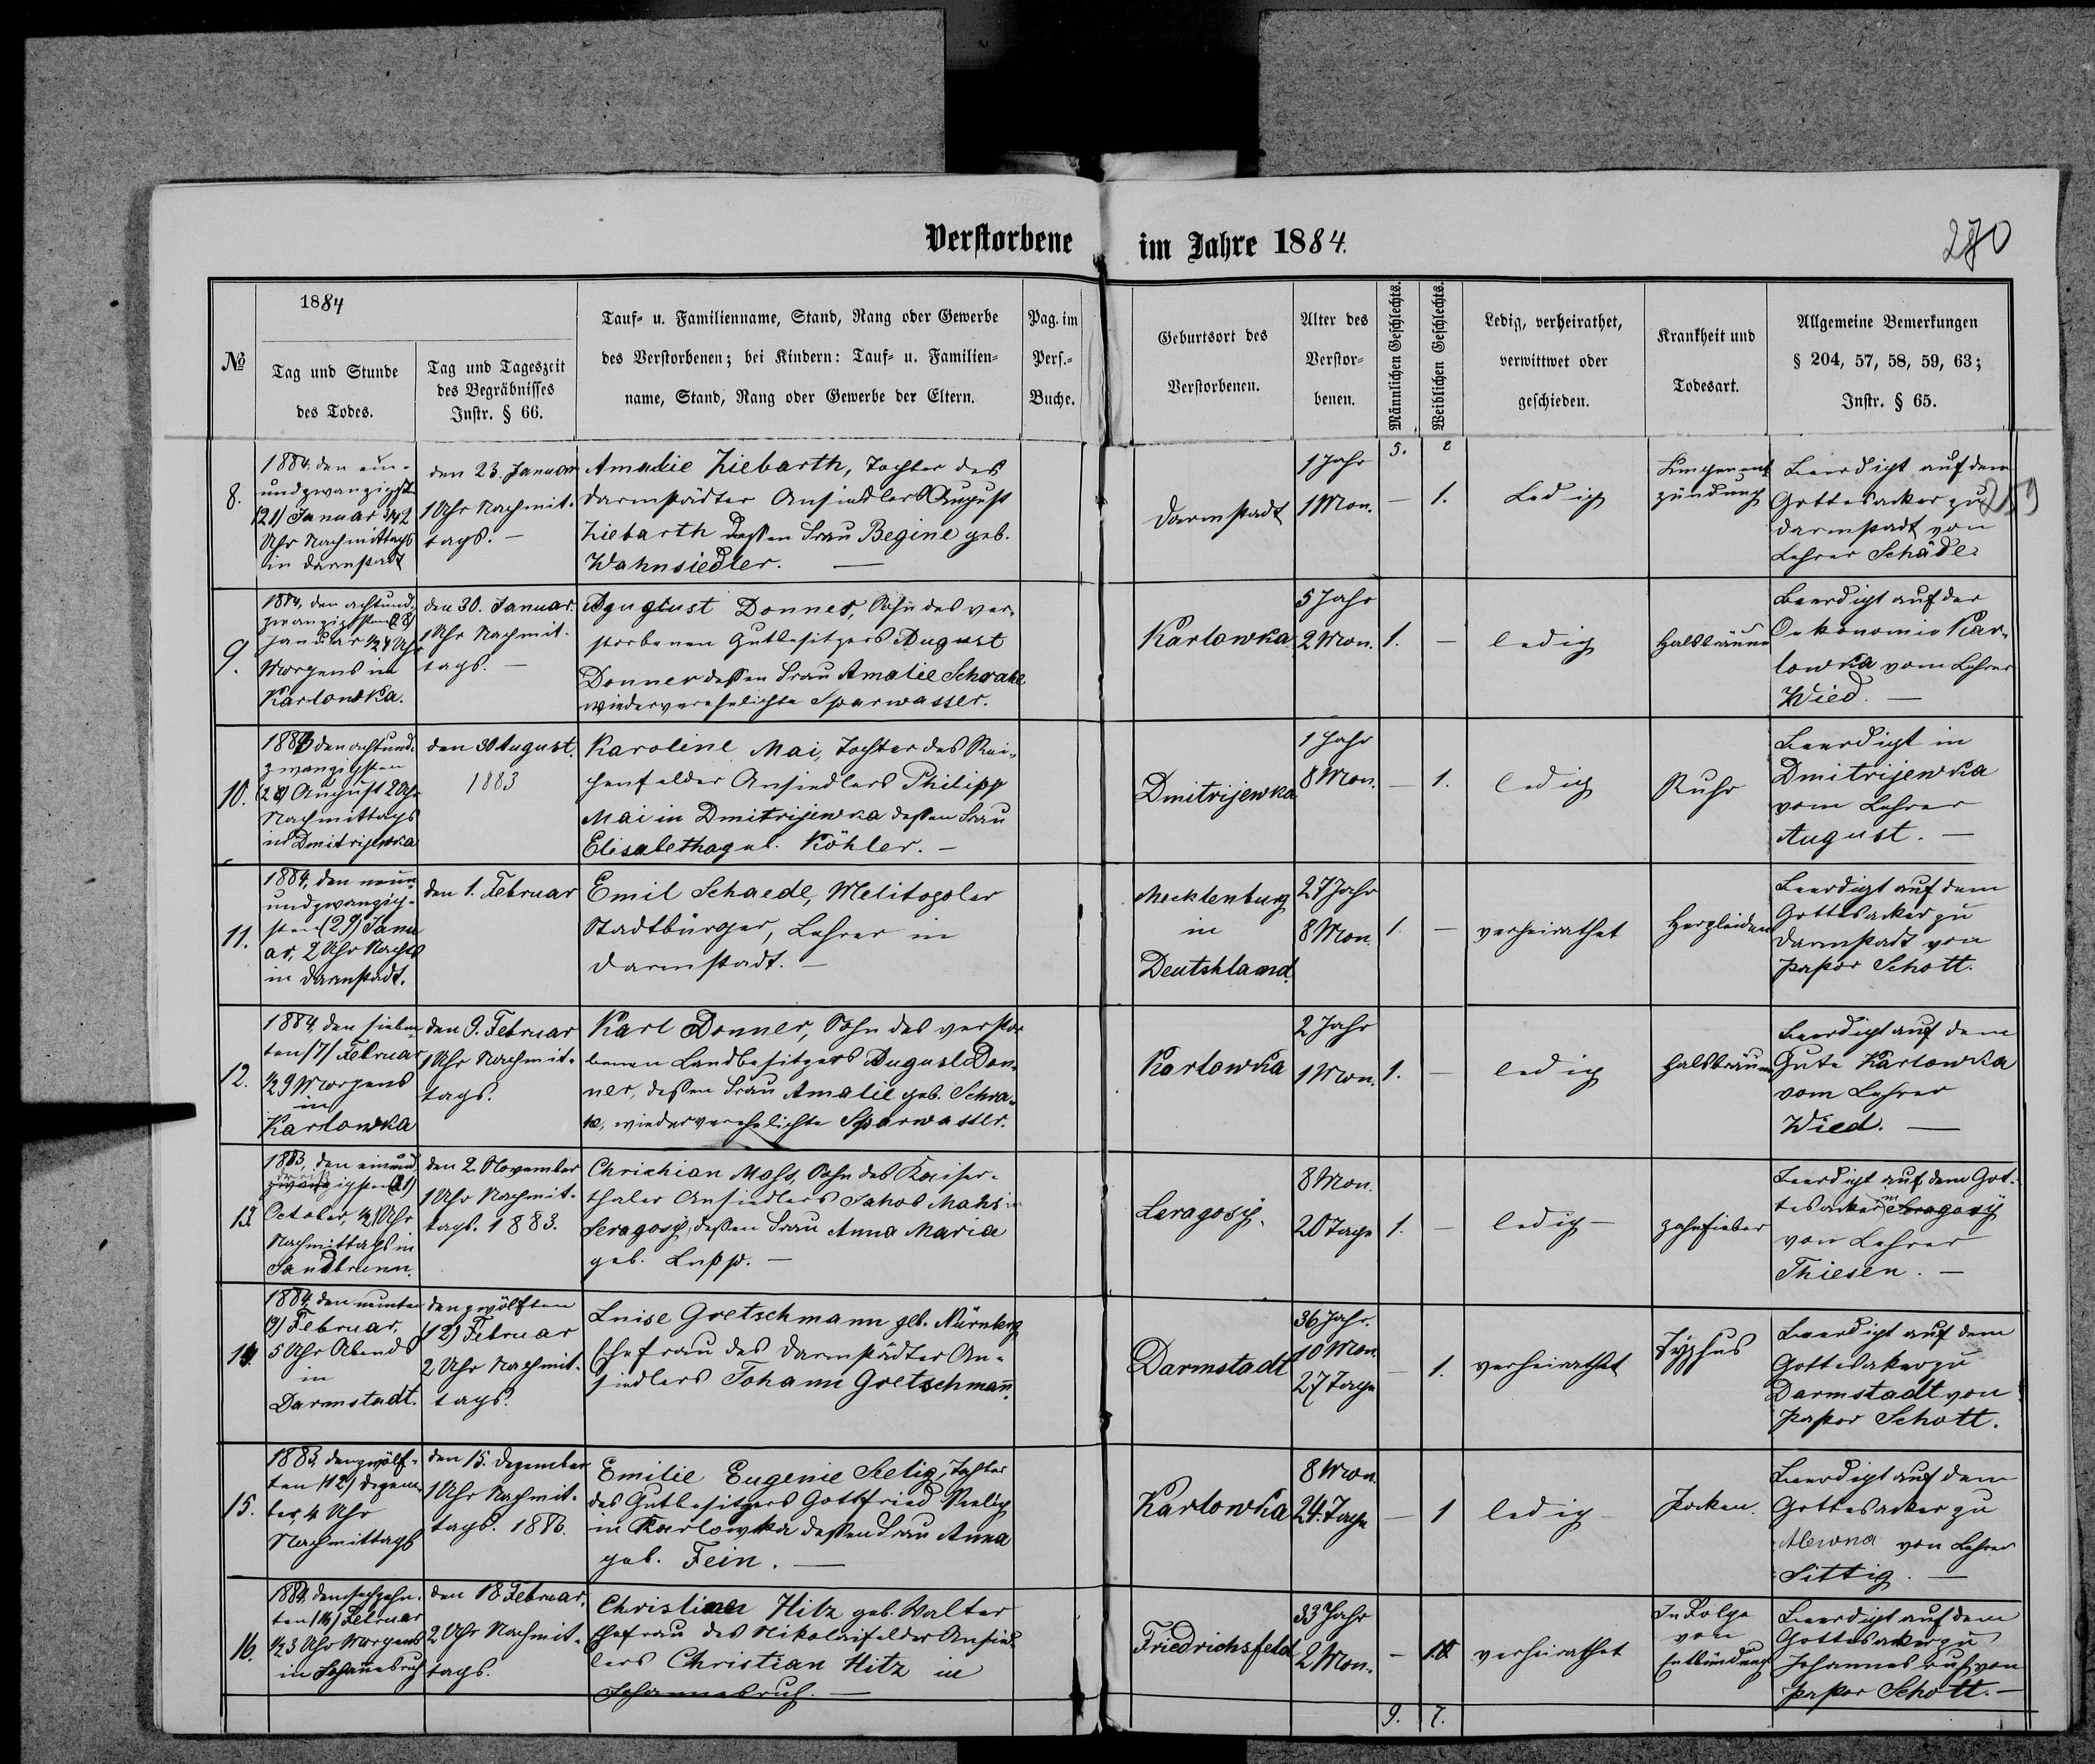 Verstorbene im Jahre 1884.
280
№
1884
Tag und Stunde
des Todes.
Tag und Tageszeit
des Begräbnisses
Instr. § 66.
Tauf- u. Familienname, Stand, Rang oder Gewerbe
des Verstorbenen; bei Kindern: Tauf- u. Familien-
name, Stand, Rang oder Gewerbe der Eltern.
Pag. im
Pers.-
Buche.
Geburtsort des
Verstorbenen.
Alter des
Verstor-
benen.
Männlichen Geschlechts.
Weiblichen Geschlechts.
Ledig, verheirathet,
verwittwet oder
geschieden.
Krankheit und
Todesart.
Allgemeine Bemerkungen
§ 204, 57, 58, 59, 63;
Instr. § 65.
5. 2
8.
1884. den ein-
undzwanzigsten
(21) Januar 3/4 2
Uhr Nachmittags
in Darmstadt
den 23. Januar
1 Uhr Nachmit-
tags. —
Amalie Ziebarth, Tochter des
Darmstädter Ansiedlers August
Ziebarth dessen Frau Regine geb.
Wahnsiedler. —
Darmstadt
1 Jahr
1 Mon.
—
1.
Ledig
Lungenent
zündung
Beerdigt auf dem
Gottesacker zu
Darmstadt von
Lehrer Schäde.
259
9.
1884, den achtund-
zwanzigsten (28)
Januar 1/2 4 Uhr
Morgens in
Karlowka.
den 30. Januar.
1 Uhr Nachmit-
tags. —
August Donner, Sohn des ver-
storbenen Gutbesitzers August
Donner dessen Frau Amalie Schrake
wiederverehelichte Sparwasser.
Karlowka
5 Jahr
2 Mon.
1.
—
ledig
Halsbräune
Beerdigt auf der
Oekonomie Kar-
lowka vom Lehrer
Wied. —
10.
1883 den achtund-
zwanzigsten
(28) August 2 Uhr
Nachmittags
in Dmitrijewka
den 30 August.
1883
Karoline Mai, Tochter des Rei-
chenfelder Ansiedlers Philipp
Mai in Dmitrijewka dessen Frau
Elisabetha geb. Köhler. —
Dmitrijewka
1 Jahr
8 Mon.
—
1.
ledig
Ruhr
Beerdigt in
Dmitrijewka
vom Lehrer
August. —
11.
1884, den neun-
undzwanzig-
sten (29) Janu
ar, 2 Uhr Nachts
in Darmstadt.
den 1. Februar
Emil Schaede, Melitopoler
Stadtbürger, Lehrer in
Darmstadt. —
Mecklenburg
in
Deutshland.
27 Jahr
8 Mon.
1.
—
verheirathet
Herzleiden
Beerdigt auf dem
Gottesacker zu
Darmstadt von
Pastor Schott.
12.
1884, den sieben-
ten (7) Februar
1/2 9 Morgens
in
Karlowka
den 9. Februar
1 Uhr Nachmit-
tags.
Karl Donner, Sohn des verstor
benen Landbesitzers August Don-
ner, dessen Frau Amalie geb. Schra-
ke, wiederverehelichte Sparwasser.
Karlowka
2 Jahr
1 Mon.
1.
—
ledig
Halsbräune
Beerdigt auf dem
Gute Karlowka
vom Lehrer
Wied. —
13.
1883, den einund
dreißigsten (31)
October, 1/2 1 Uhr
Nachmittags in
Sandbrunn.
den 2. November
1 Uhr Nachmit-
tags. 1883.
Christian Mahs, Sohn des Kaiser-
thaler Ansiedlers Jakob Mahs in
Seragosij, dessen Frau Anna Maria
geb. Lupp. —
Seragosij.
8 Mon.
20 Tage
1.
—
ledig —
Zahnfieber
Beerdigt auf dem Got-
tesacker in Seragosij
von Lehrer
Thiesen. —
14.
1884, den neunten
(9) Februar,
5 Uhr Abends
in
Darmstadt.
den zwölften
(12) Februar
2 Uhr Nachmit-
tags.
Luise Gretschmann geb. Nürnberg
Ehefrau des Darmstädter An-
siedlers Johann Gretschmann.
Darmstadt
36 Jahr.
10 Mon.
27 Tage
—
1.
verheirathet
Typhus
Beerdigt auf dem
Gottesacker zu
Darmstadt von
Pastor Schott.
15.
1883, den zwölf-
ten (12) Dezem-
ber, 4 Uhr
Nachmittags
den 15. Dezember
1 Uhr Nachmit-
tags. 1883.
Emilie Eugenie Seelig, Tochter
des Gutbesitzers Gottfried Seelig
in Karlowka dessen Frau Anna
geb. Fein. —
Karlowka
8 Mon.
24. Tage
—
1
ledig
Pocken.
Beerdigt auf dem
Gottesacker zu
von Lehrer
Sittig. —
16.
1884, den sechzehn-
ten (16) Februar
1/2 3 Uhr Morgens
in Johannesruh
den 18. Februar,
2 Uhr Nachmit-
tags.
Christina Hitz geb. Walter
Ehefrau des Nikolaifelder Ansied-
lers Christian Hitz in
Johannesruh. —
Friedrichsfeld
33 Jahr
2 Mon.
—
1.
verheirathet
In Folge
von
Entbindung
Beerdigt auf dem
Gottesacker zu
Johannesruh von
Pastor Schott. —
9. 7.